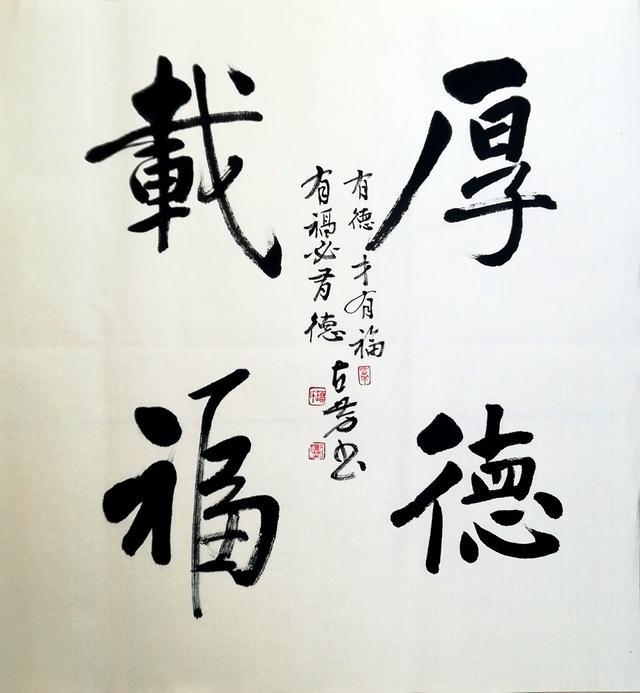 厚德
載福
有德才有福
有福必有德
古芳书